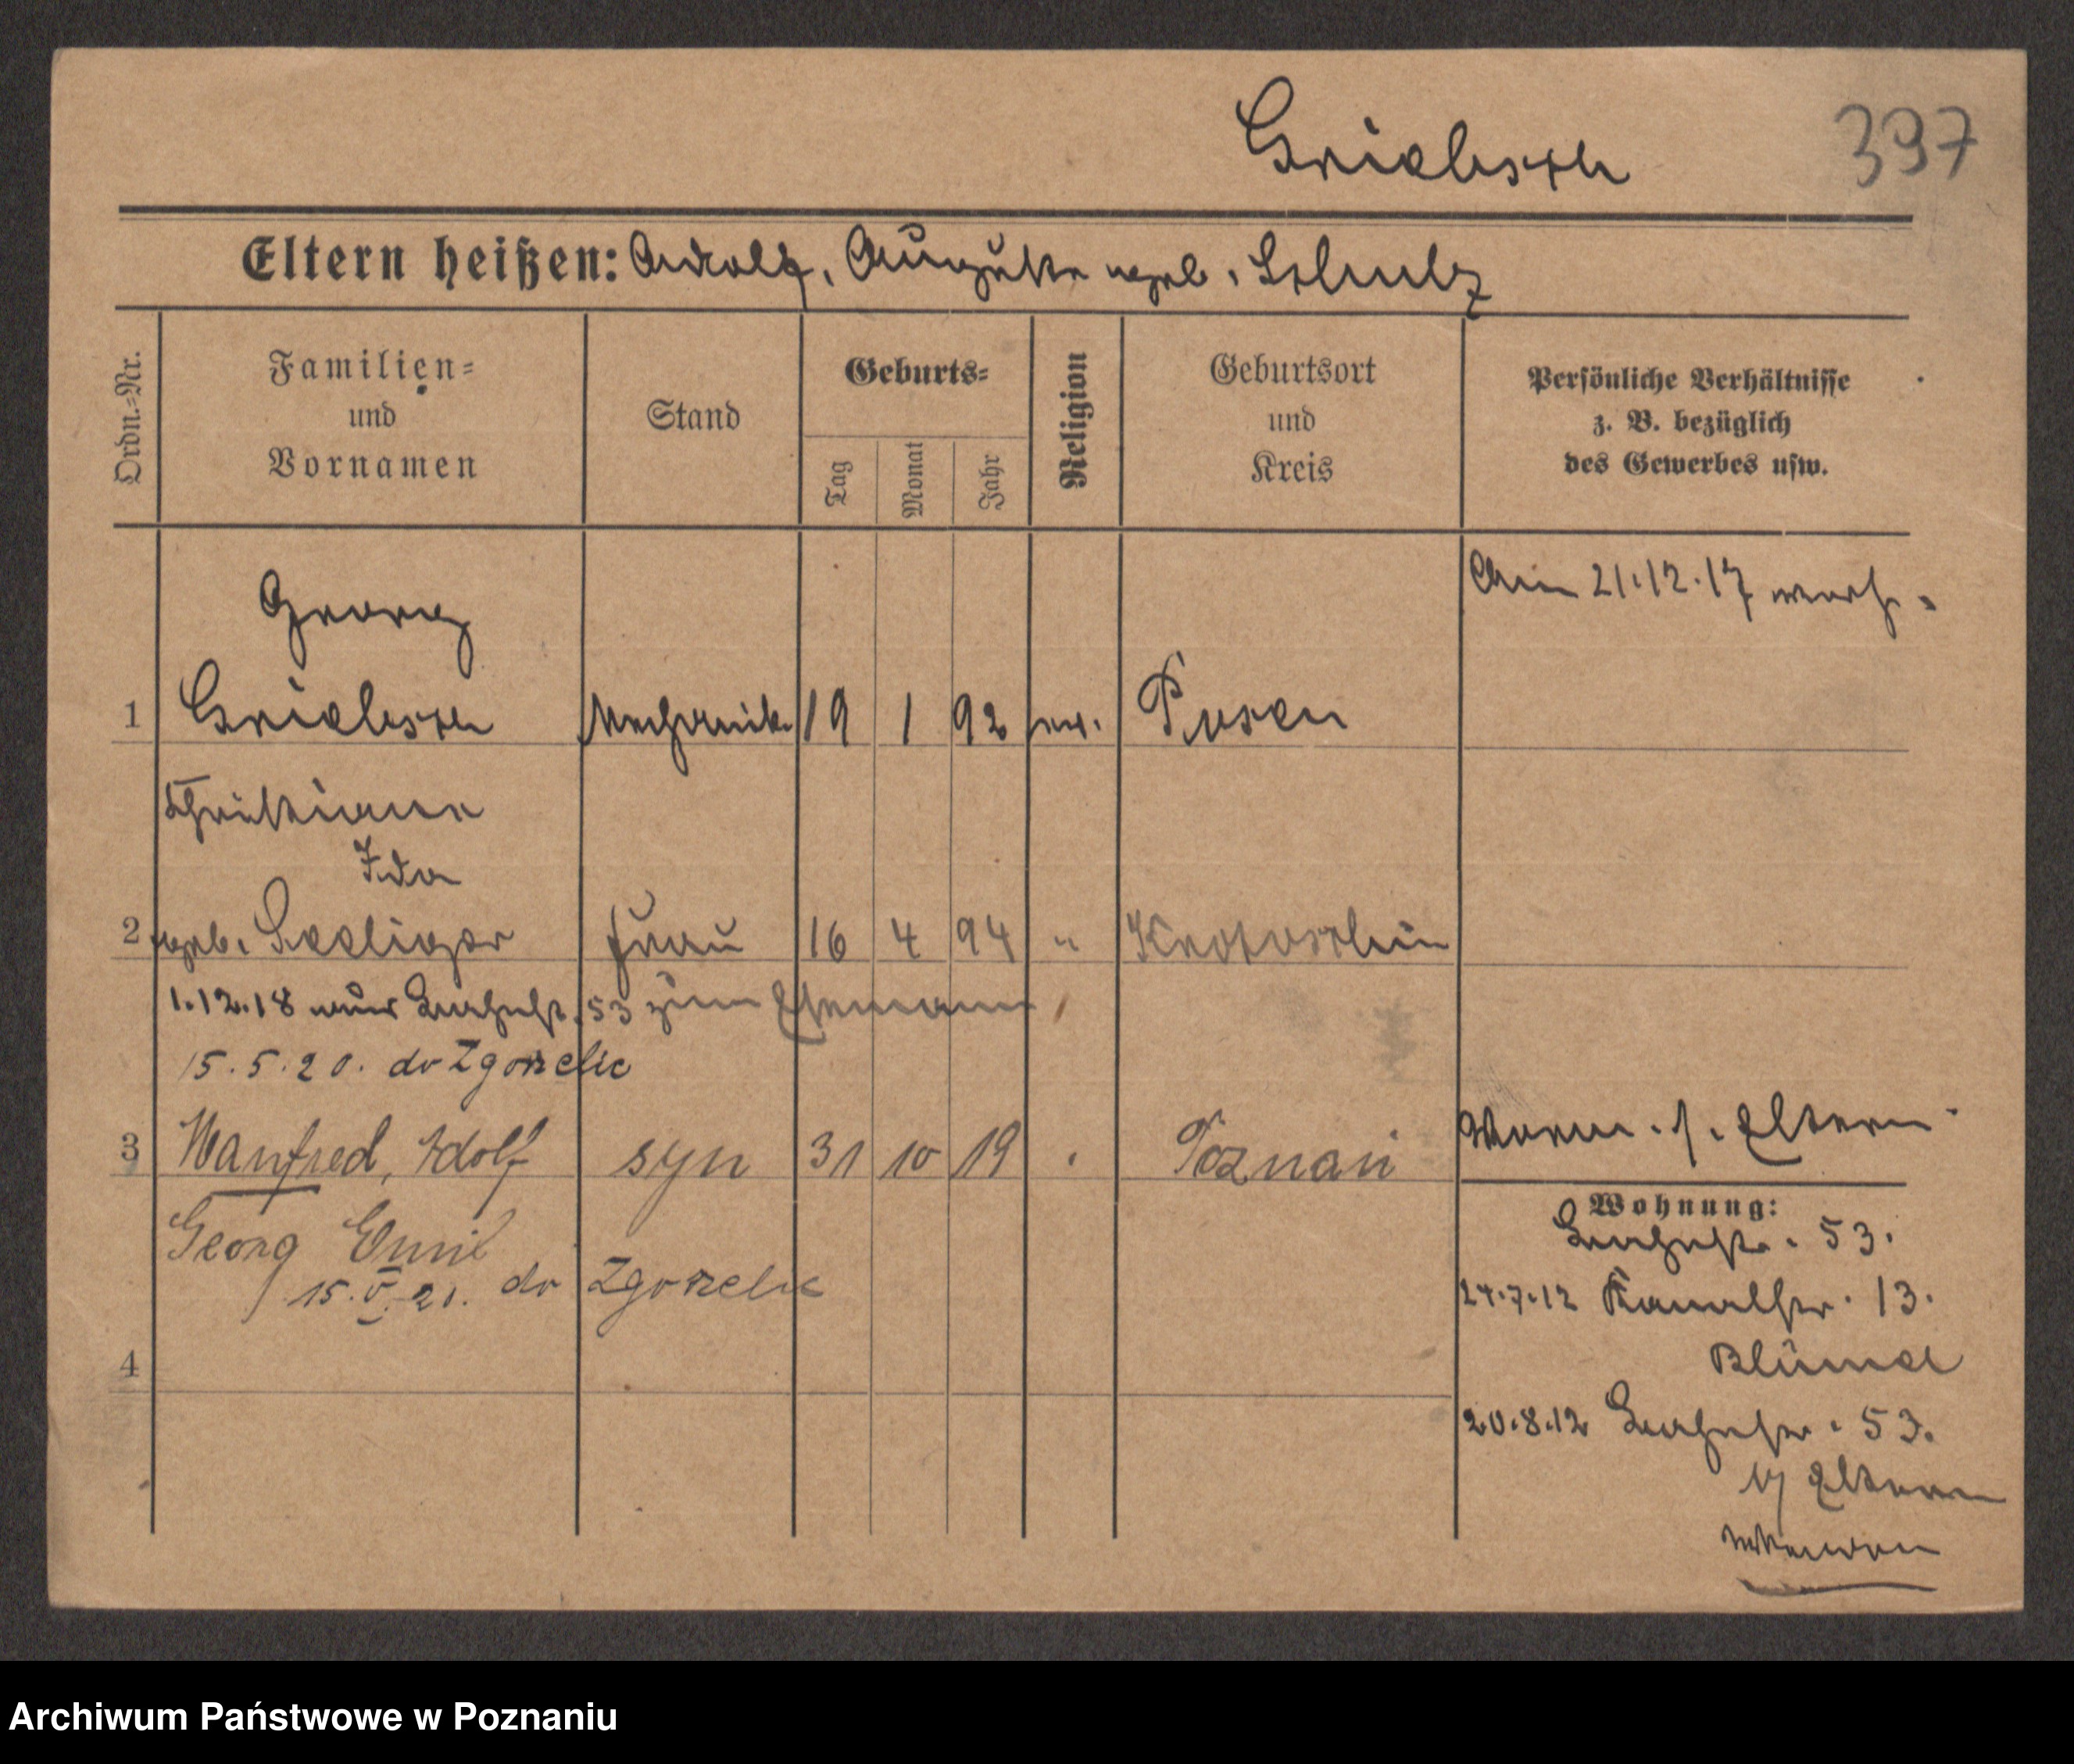 Griebsch 397
Eltern heißen: Adolf, Auguste geb. Schulz
Ordn.=Nr.
Familien=
und
Vornamen
Stand
Geburts=
Tag
Monat
Jahr
Religion
Geburtsort
und
Kreis
Persönliche Verhältnisse
z. B. bezüglich
des Gewerbes usw.
Georg
Am 21.12.17 verh.
1 Griebsch Mechanik. 19 1 92 ev. Posen
Christiane
Ida
2 geb. Seeliger Frau 16 4 94 " Krotoschin
1.12.18 53 zum Ehemann
15.5.20. do Zgorzelic
3 Manfred, Adolf syn 31 10 19 Poznań
Georg Emil
15.V.20. do Zgorzelic
4
Eltern
Wohnung:
53.
24.7.12 Kanalstr. 13.
Blümel
20.8.12 53.
Eltern